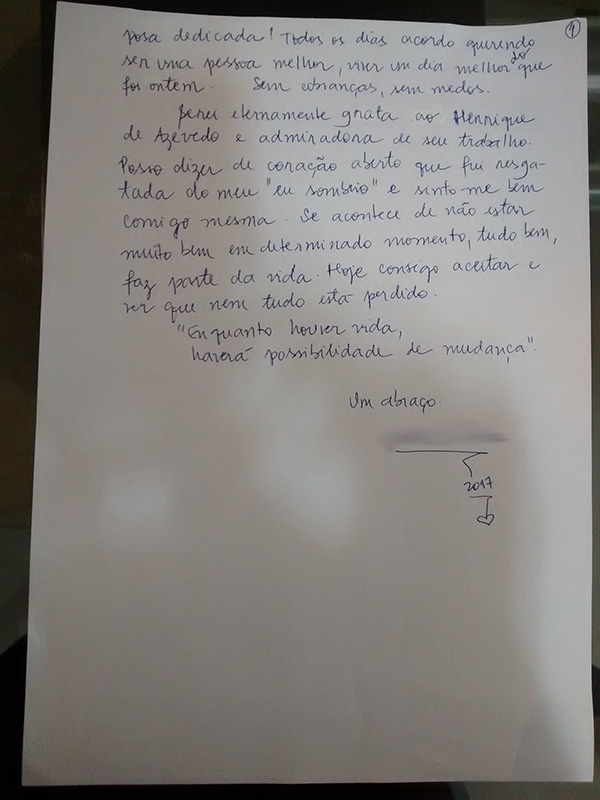 4
posa dedicada! Todos os dias acordo querendo
ser uma pessoa melhor, viver um dia melhor do que
foi ontem. Sem cobranças, sem medos.
Serei eternamente grata ao Henrique
de Azevedo e admiradora de seu trabalho.
Posso dizer de coração aberto que fui resga-
tada do meu "eu sombrio" e sinto-me bem
comigo mesma. Se acontece de não estar
muito bem em determinado momento, tudo bem,
faz parte da vida. Hoje consigo aceitar e
ver que nem tudo está perdido.
"Enquanto houver vida,
haverá possibilidade de mudança".
Um abraço.
2017